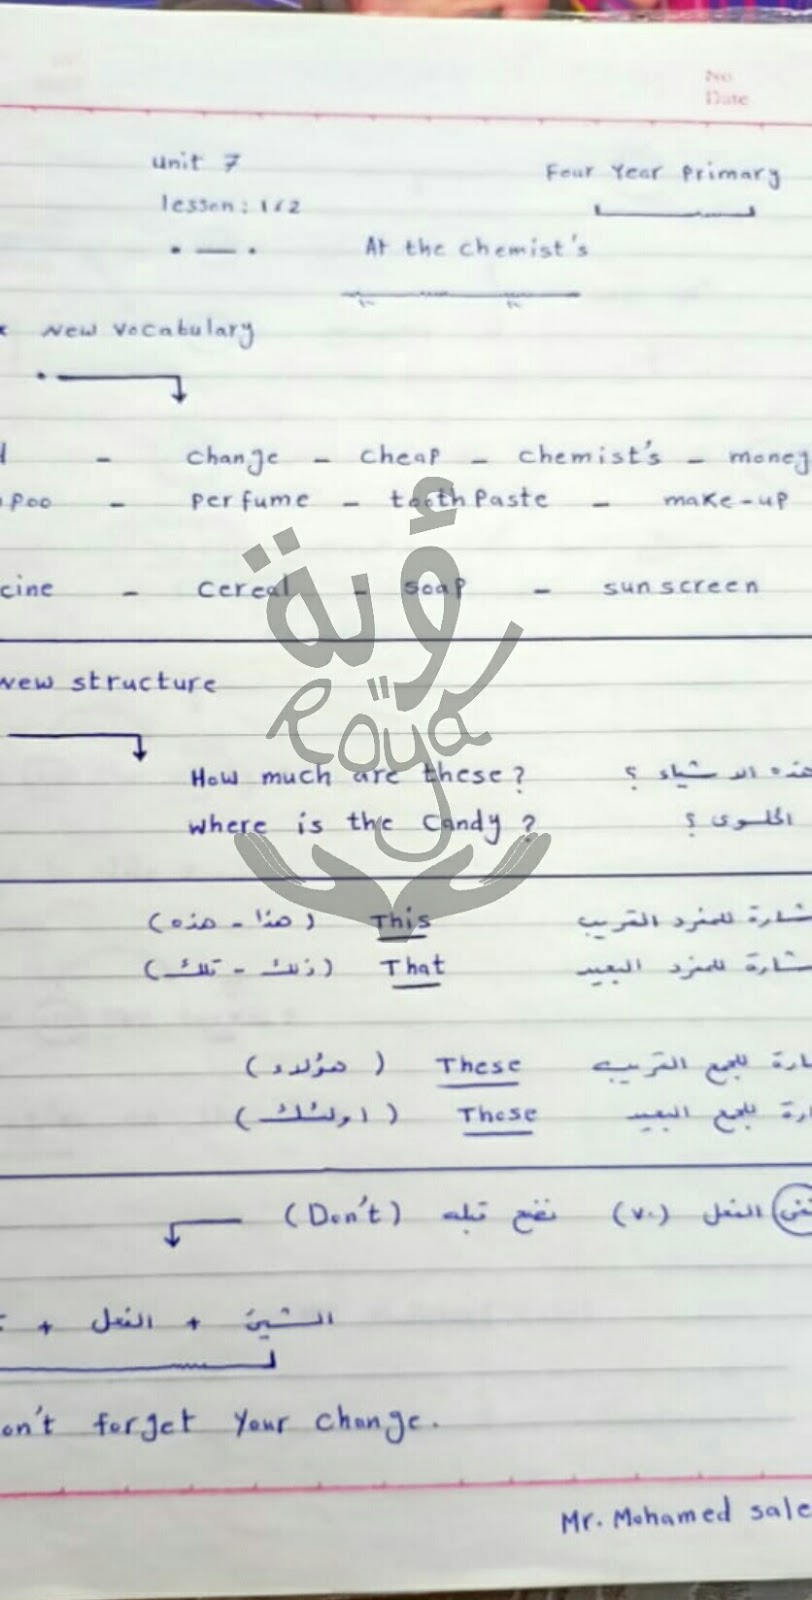 No
Date
unit 7
Four Year Primary
lesson: 1,2
At the chemist's
New vocabulary
change - cheap - chemist's - money
poo - perfume - toothpaste - make-up
cine - cereal - soap - sunscreen
رؤية
Roya
New structure
How much are these? هذه الاشياء ؟
where is the candy? الحلوى ؟
This (هذا - هذه) شارة للمفرد القريب
That (ذلك - تلك) شارة للمفرد البعيد
These (هؤلاء) ارة للجمع القريب
Those (اولئك) ارة للجمع البعيد
الفعل (v.) نضع قبله (Don't)
+ الفعل + الشئ
on't forget your change.
Mr. Mohamed sale